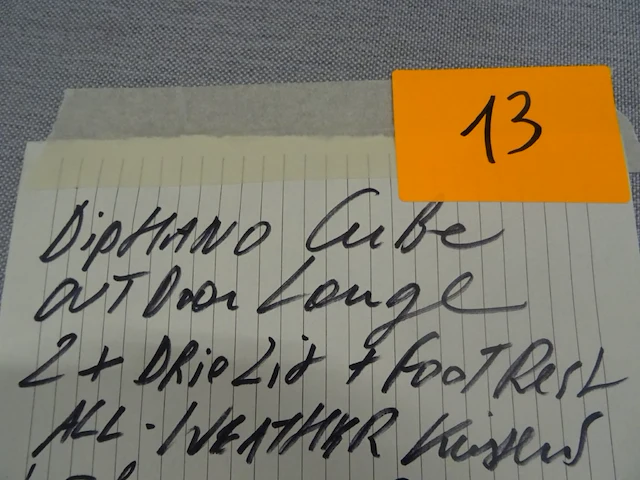 13
DipHANO CuBe
OUTDoor Louge
2 + DRieZit + FooTResT
ALL-WEATHER Kussens